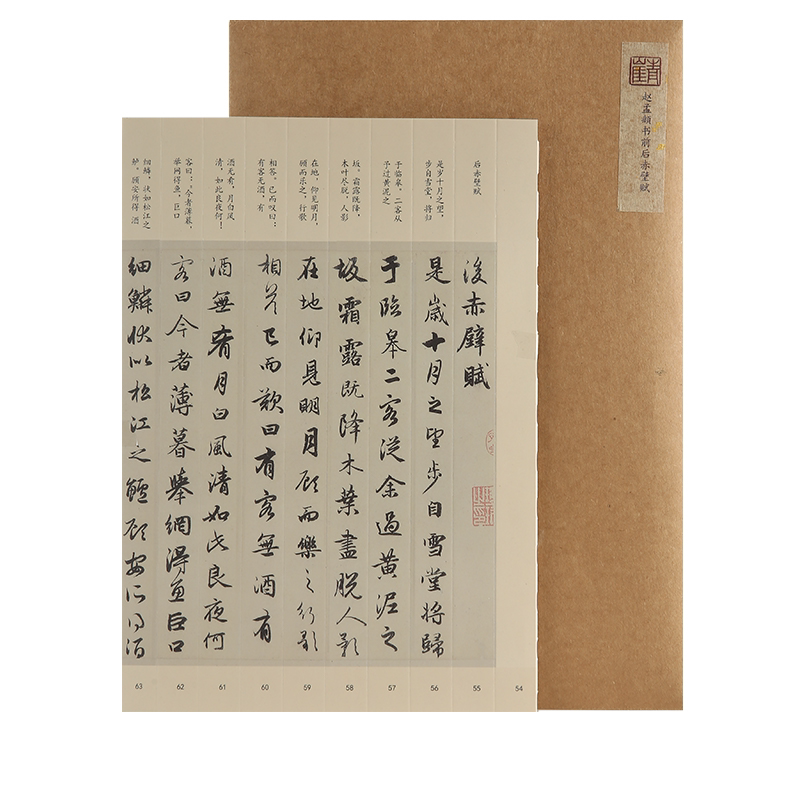 赵孟頫书前后赤壁赋
后赤壁赋
是岁十月之望,
步自雪堂,将归
于临皋。二客从
予过黄泥之
坂。霜露既降,
木叶尽脱,人影
在地,仰见明月,
顾而乐之,行歌
相答。已而叹曰:
有客无酒,有
酒无肴,月白风
清,如此良夜何!
客曰:“今者薄暮,
举网得鱼,巨口
细鳞,状如松江之
鲈。顾安所得 酒
後赤壁賦
是歲十月之望步自雪堂將歸
于臨皋二客從余過黃泥之
坂霜露既降木葉盡脫人影
在地仰見明月顧而樂之行歌
相答已而歎曰有客無酒有
酒無肴月白風清如此良夜何
客曰今者薄暮舉網得魚巨口
細鱗狀似松江之鱸顧安所得酒
63 62 61 60 59 58 57 56 55 54